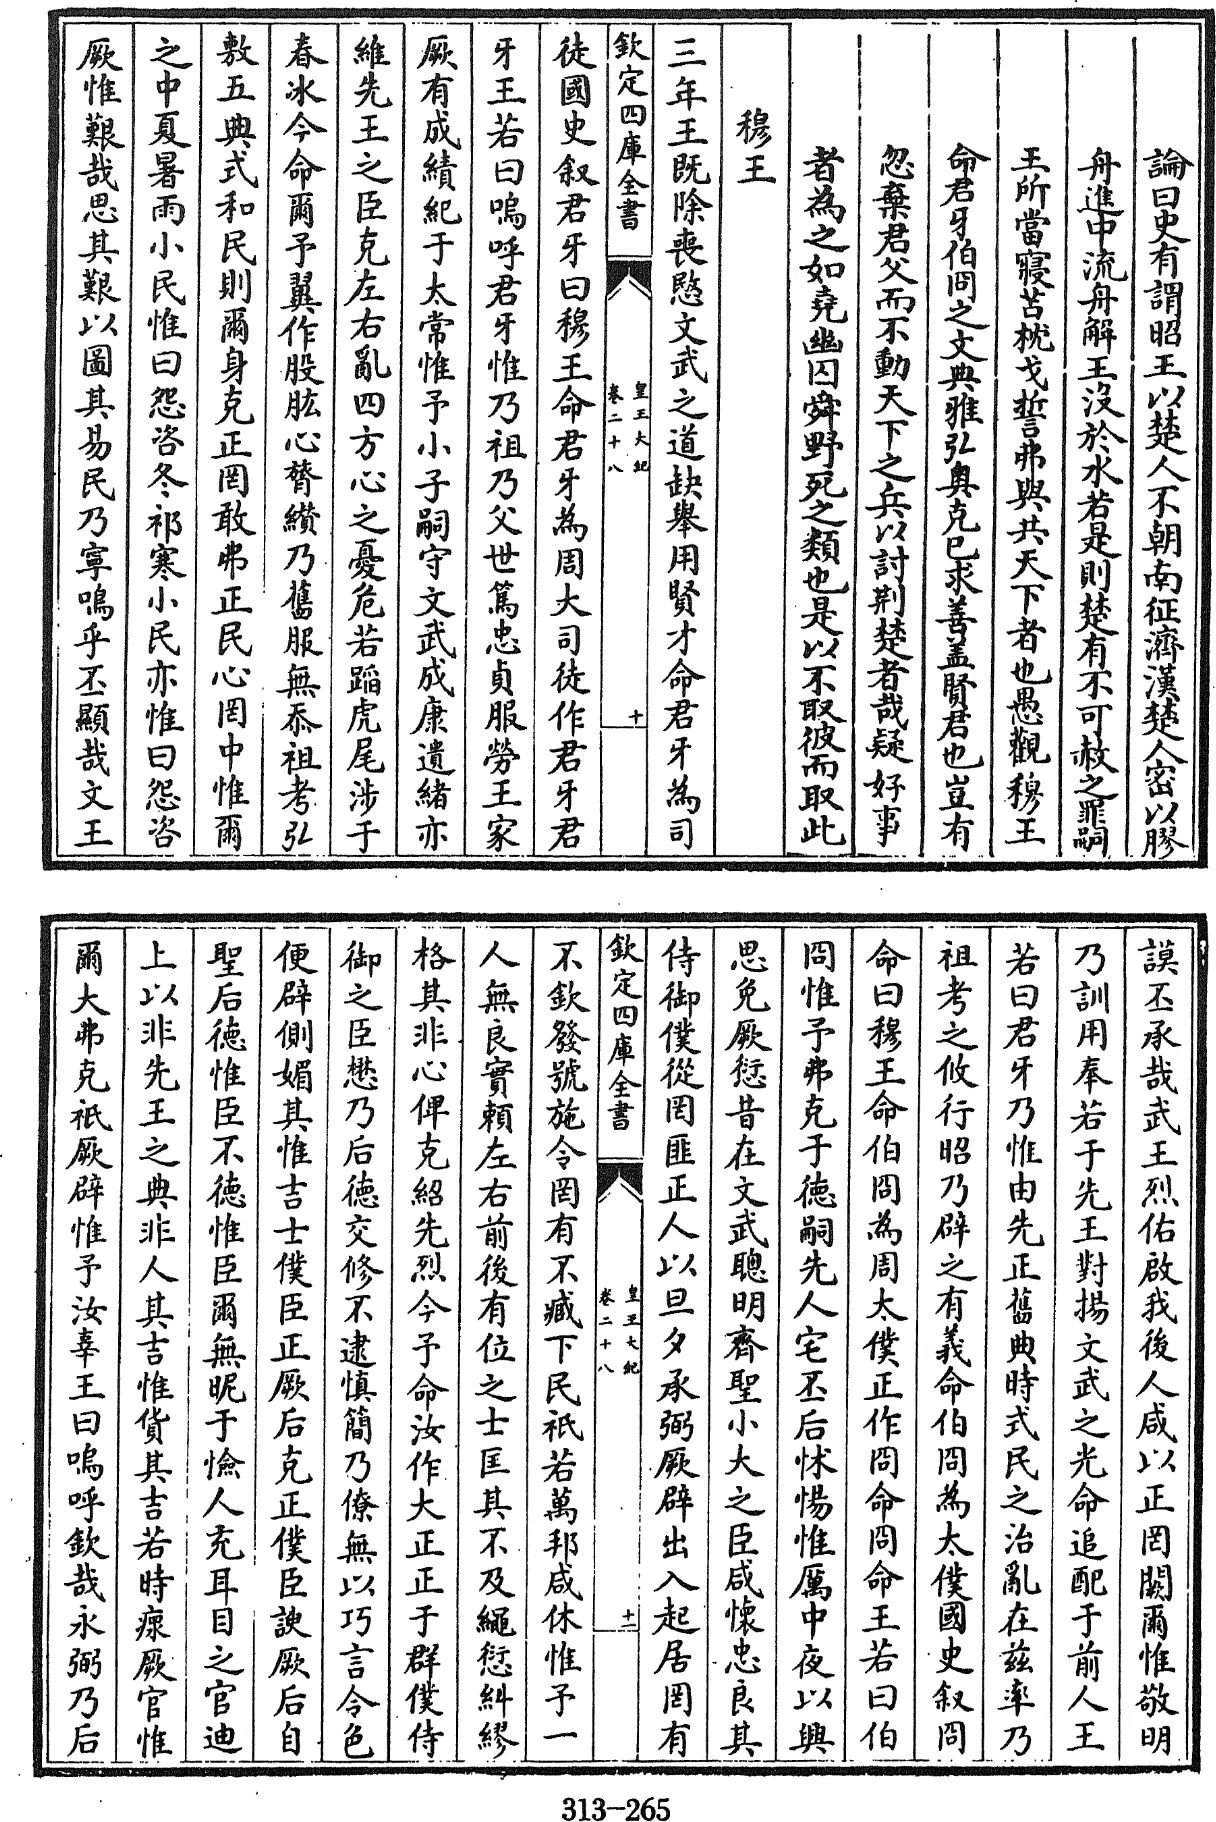 論曰史有謂昭王以楚人不朝南征濟漢楚人密以膠
舟進中流舟解王沒於水若是則楚有不可赦之罪嗣
王所當寢苫枕戈誓弗與共天下者也愚觀穆王
命君牙伯冏之文典雅弘奧克己求善蓋賢君也豈有
忽棄君父而不動天下之兵以討荆楚者哉疑好事
者為之如堯幽囚舜野死之類也是以不取彼而取此
穆王
三年王既除喪愍文武之道缺舉用賢才命君牙為司
欽定四庫全書
皇王大紀
卷二十八
十
徒國史叙君牙曰穆王命君牙為周大司徒作君牙君
牙王若曰嗚呼君牙惟乃祖乃父世篤忠貞服勞王家
厥有成績紀于太常惟予小子嗣守文武成康遺緒亦
維先王之臣克左右亂四方心之憂危若蹈虎尾涉于
春冰今命爾予翼作股肱心膂纘乃舊服無忝祖考弘
敷五典式和民則爾身克正罔敢弗正民心罔中惟爾
之中夏暑雨小民惟曰怨咨冬祁寒小民亦惟曰怨咨
厥惟艱哉思其艱以圖其易民乃寧嗚乎丕顯哉文王
謨丕承哉武王烈佑啟我後人咸以正罔闕爾惟敬明
乃訓用奉若于先王對揚文武之光命追配于前人王
若曰君牙乃惟由先正舊典時式民之治亂在茲率乃
祖考之攸行昭乃辟之有義命伯冏為太僕國史叙冏
命曰穆王命伯冏為周太僕正作冏命冏命王若曰伯
冏惟予弗克于德嗣先人宅丕后怵惕惟厲中夜以興
思免厥愆昔在文武聰明齊聖小大之臣咸懷忠良其
侍御僕從罔匪正人以旦夕承弼厥辟出入起居罔有
欽定四庫全書
皇王大紀
卷二十八
十一
不欽發號施令罔有不臧下民祇若萬邦咸休惟予一
人無良實賴左右前後有位之士匡其不及繩愆糾繆
格其非心俾克紹先烈今予命汝作大正正于群僕侍
御之臣懋乃后德交修不逮慎簡乃僚無以巧言令色
便辟側媚其惟吉士僕臣正厥后克正僕臣諛厥后自
聖后德惟臣不德惟臣爾無昵于憸人充耳目之官迪
上以非先王之典非人其吉惟貨其吉若時瘝厥官惟
爾大弗克祇厥辟惟予汝辜王曰嗚呼欽哉永弼乃后
313-265